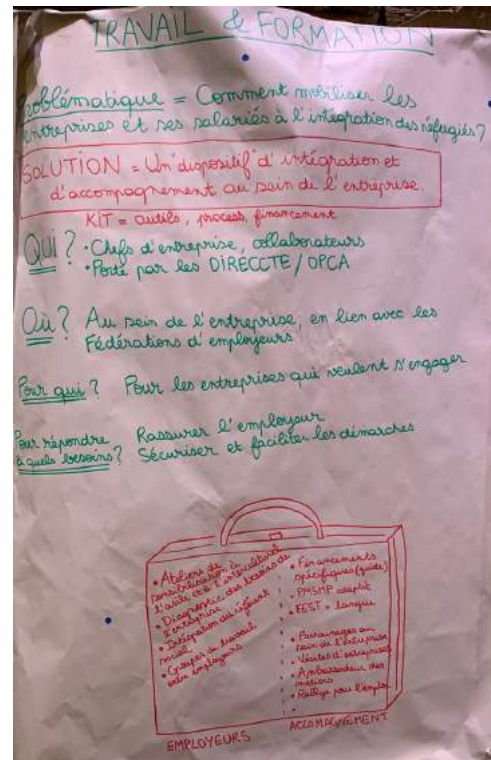 TRAVAIL & FORMATION
Problématique = Comment mobiliser les
entreprises et ses salariés à l'intégration des réfugiés?
SOLUTION = Un dispositif d'intégration et
d'accompagnement au sein de l'entreprise.
KIT = outils, process, financement
QUI? • Chefs d'entreprise, collaborateurs
• Porté par les DIRECCTE / OPCA
Où? Au sein de l'entreprise, en lien avec les
Fédérations d'employeurs
Pour qui? Pour les entreprises qui veulent s'engager
Pour répondre
à quels besoins?
Rassurer l'employeur
Sécuriser et faciliter les démarches
• Ateliers de
sensibilisation à
l'asile et à l'interculturel
• Diagnostic des besoins de
l'entreprise
• Intégration du
social
• Groupes de travail
employeurs
• Financements
spécifiques (guide)
• PMSMP adaptée
• langue
• Parrainages au
sein de l'entreprise
• Visites d'entreprises
• Ambassadeur des
métiers
• Rallye pour l'emploi
EMPLOYEURS
ACCOMAGNEMENT